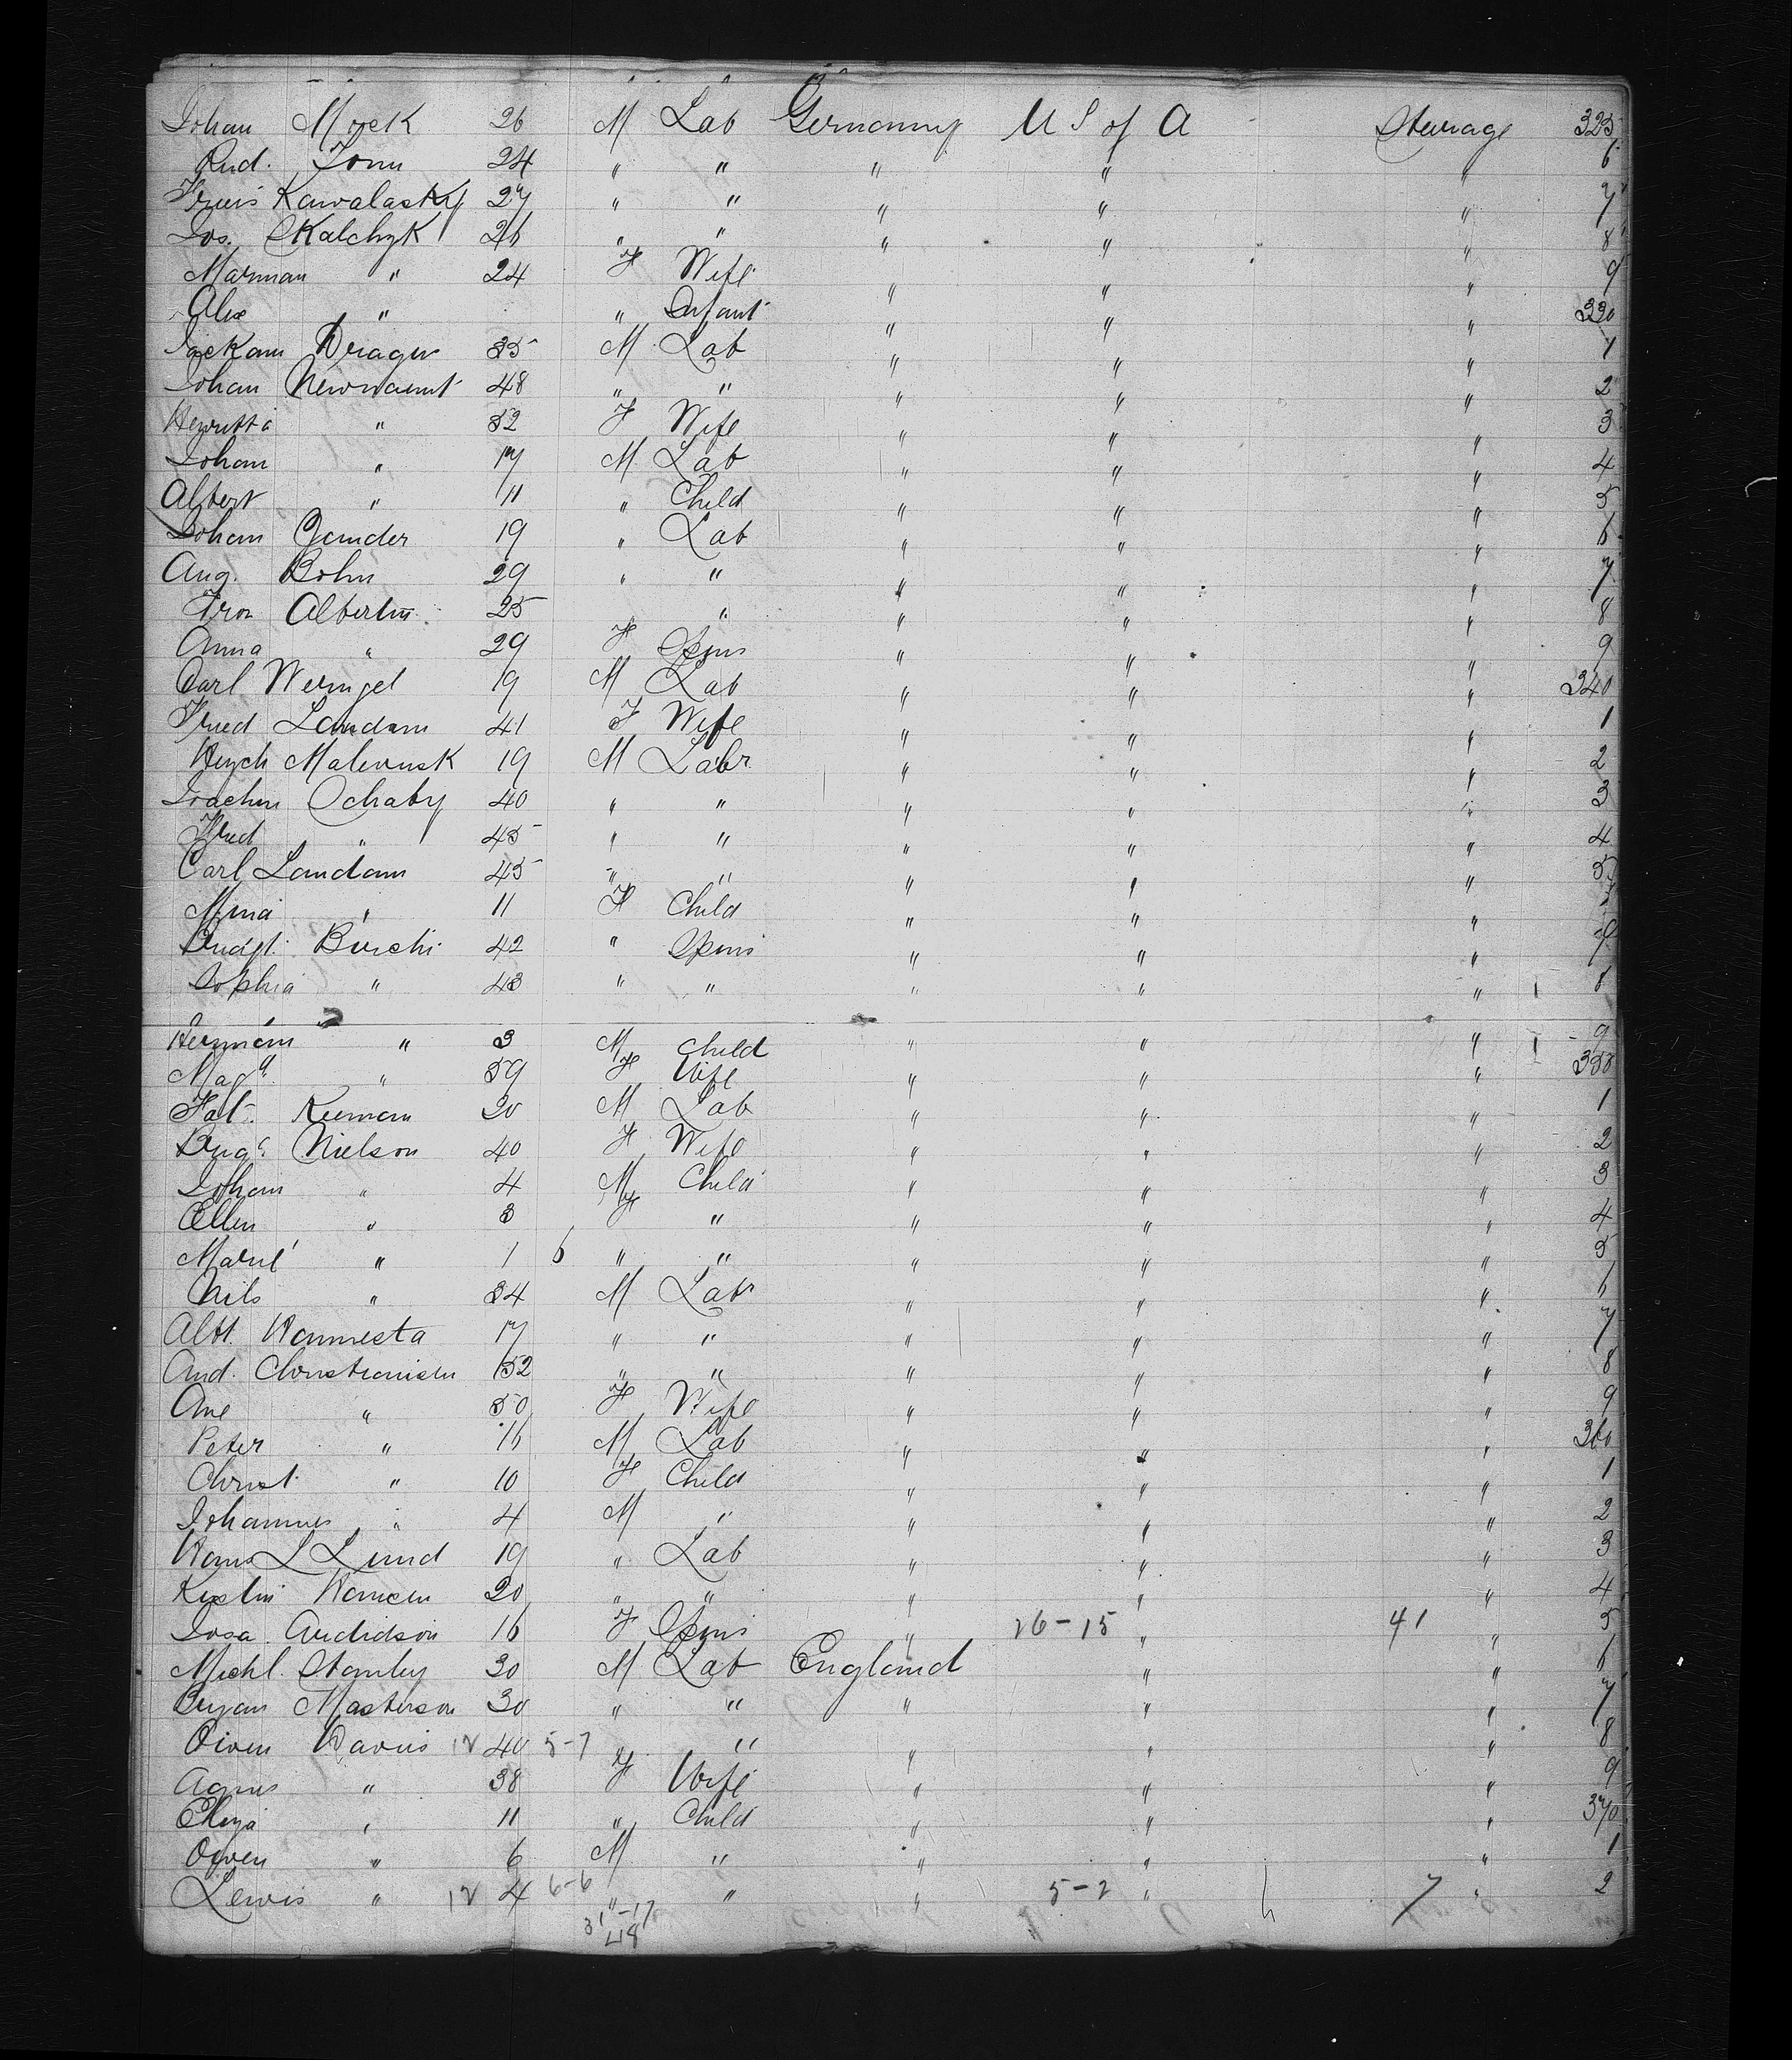 Johan Mock 26 M Lab Germany U S of A Steerage 325
Rud. Tonn 24 " " " " " 6
Kawalasky 27 " " " " " 7
Jos. Skalchyk 26 " " " " " 8
Marman " 24 F Wife " " " 9
Alex " " Infant " " " 330
Dragus 35 M Lab " " " 1
Johan 48 " " " " " 2
" 52 F Wife " " " 3
Johan " 17 M Lab " " " 4
Albert " 11 " Child " " " 5
Johan Gander 19 " Lab " " " 6
Aug. Bohn 29 " " " " " 7
25 " " " " " 8
Anna " 29 F Spins " " " 9
Carl Wenngel 19 M Lab " " " 340
Fried Landam 41 F Wife " " " 1
Malewusk 19 M Labr " " " 2
Joachm Ochaby 40 " " " " " 3
Fried " 45 " " " " " 4
Carl Landam 45 " " " " " 5
Mina " 11 F Child " " "
Burchi 42 " Spins " " " 7
Sophia " 43 " " " " " 8
Herman " 3 M Child " " " 9
Magª " 59 F Wife " " " 350
Pat. Keenan 20 M Lab " " " 1
Nielson 40 F Wife " " " 2
Johan " 4 M Child " " " 3
Ellen " 3 F " " " " 4
Marie " 1 6 " " " " " 5
Nils " 34 M Labr " " " 6
Albt. Hannesta 17 " " " " " 7
And. Christiansen 52 " " " " " 8
Ane " 50 F Wife " " " 9
Peter " 16 M Lab " " " 360
Christ " 10 F Child " " " 1
Johannes " 4 M " " " " 2
Hans L Lund 19 " Lab " " " 3
Kistin Hansen 20 " " " " " 4
Josa. 16 F Spins " 26-15 " 41 " 5
Michl. Stanley 30 M Lab England " " 6
Bryan Masterson 30 " " " " " 7
Owen Davies 12 40 5-7 " " " " " 8
Agnes " 38 F Wife " " " 9
Eliza " 11 " Child " " " 370
Owen " 6 M " " " " 1
Lewis " 12 4 6-6 " " " 5-2 " 7 " 2
31-17
48